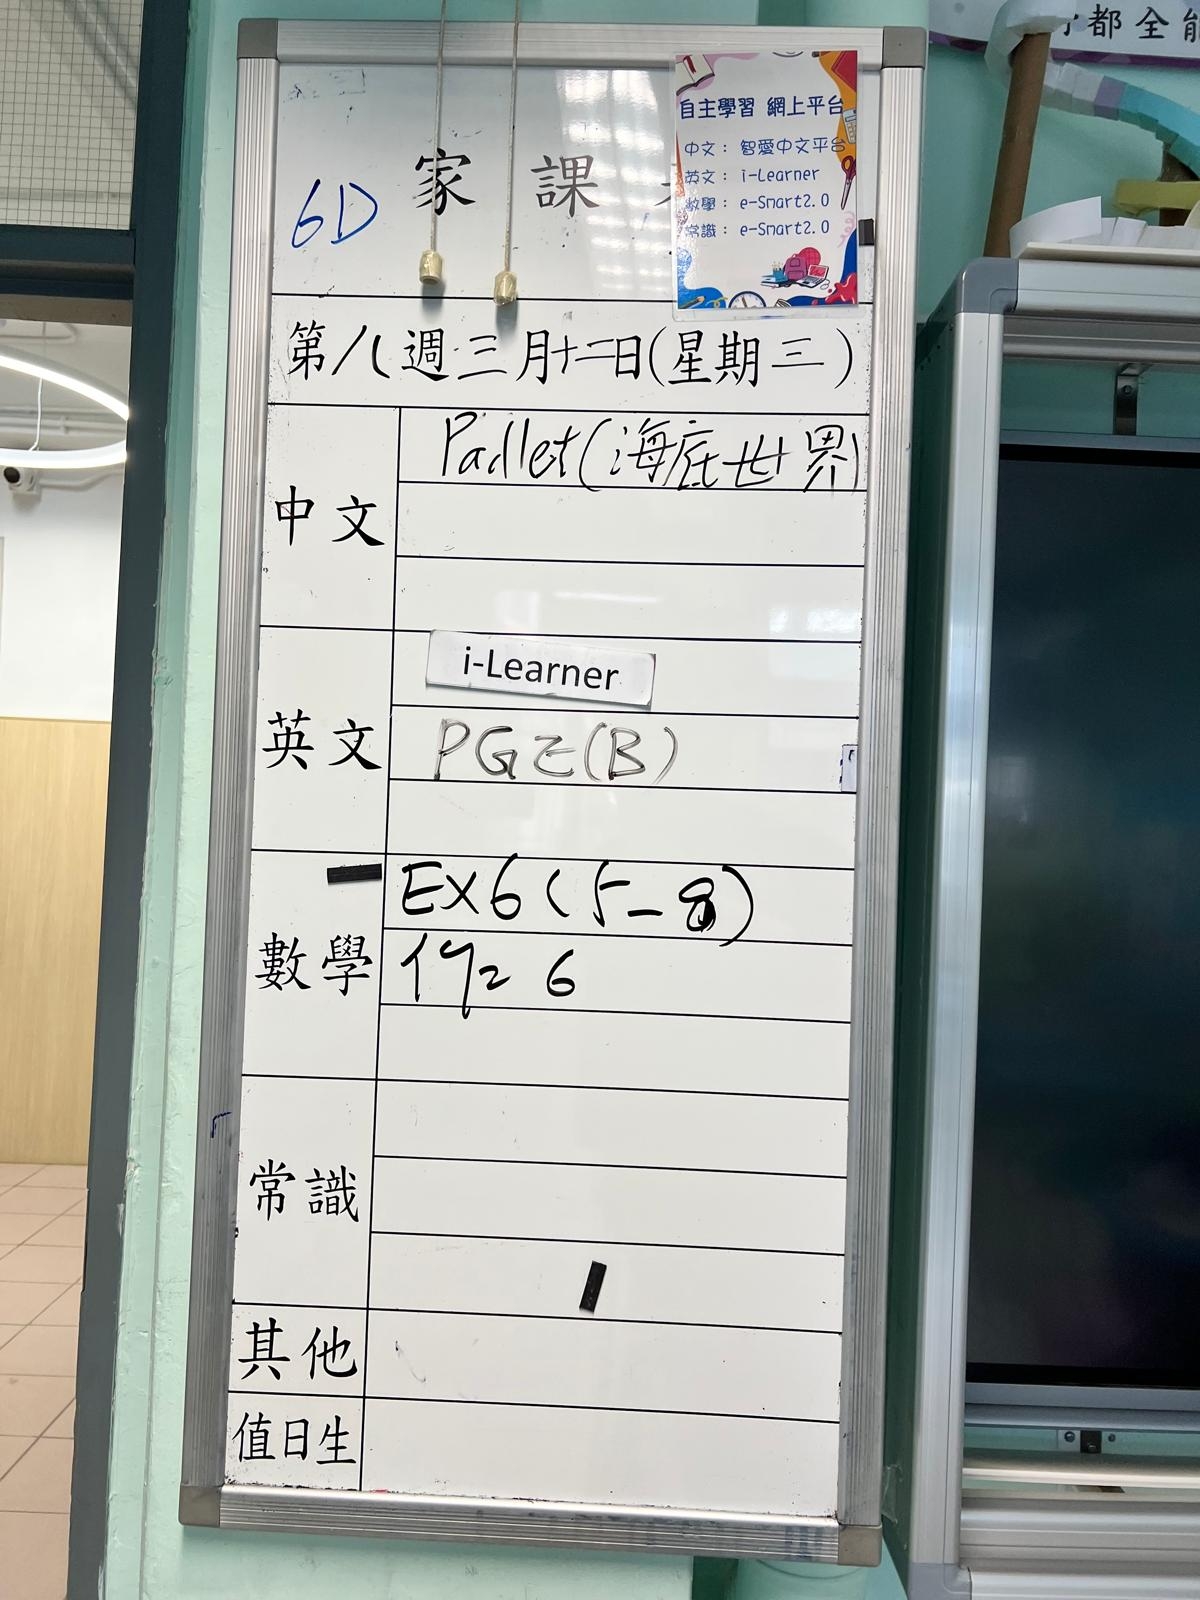 都全能
自主學習 網上平台
中文： 智愛中文平台
英文： i-Learner
數學： e-Smart2.0
常識： e-Smart2.0
6D
家課
第八週三月十二日(星期三)
中文
Padlet(海底世界)
英文
i-Learner
PGE(B)
數學
EX6(5-8)
6
常識
其他
值日生